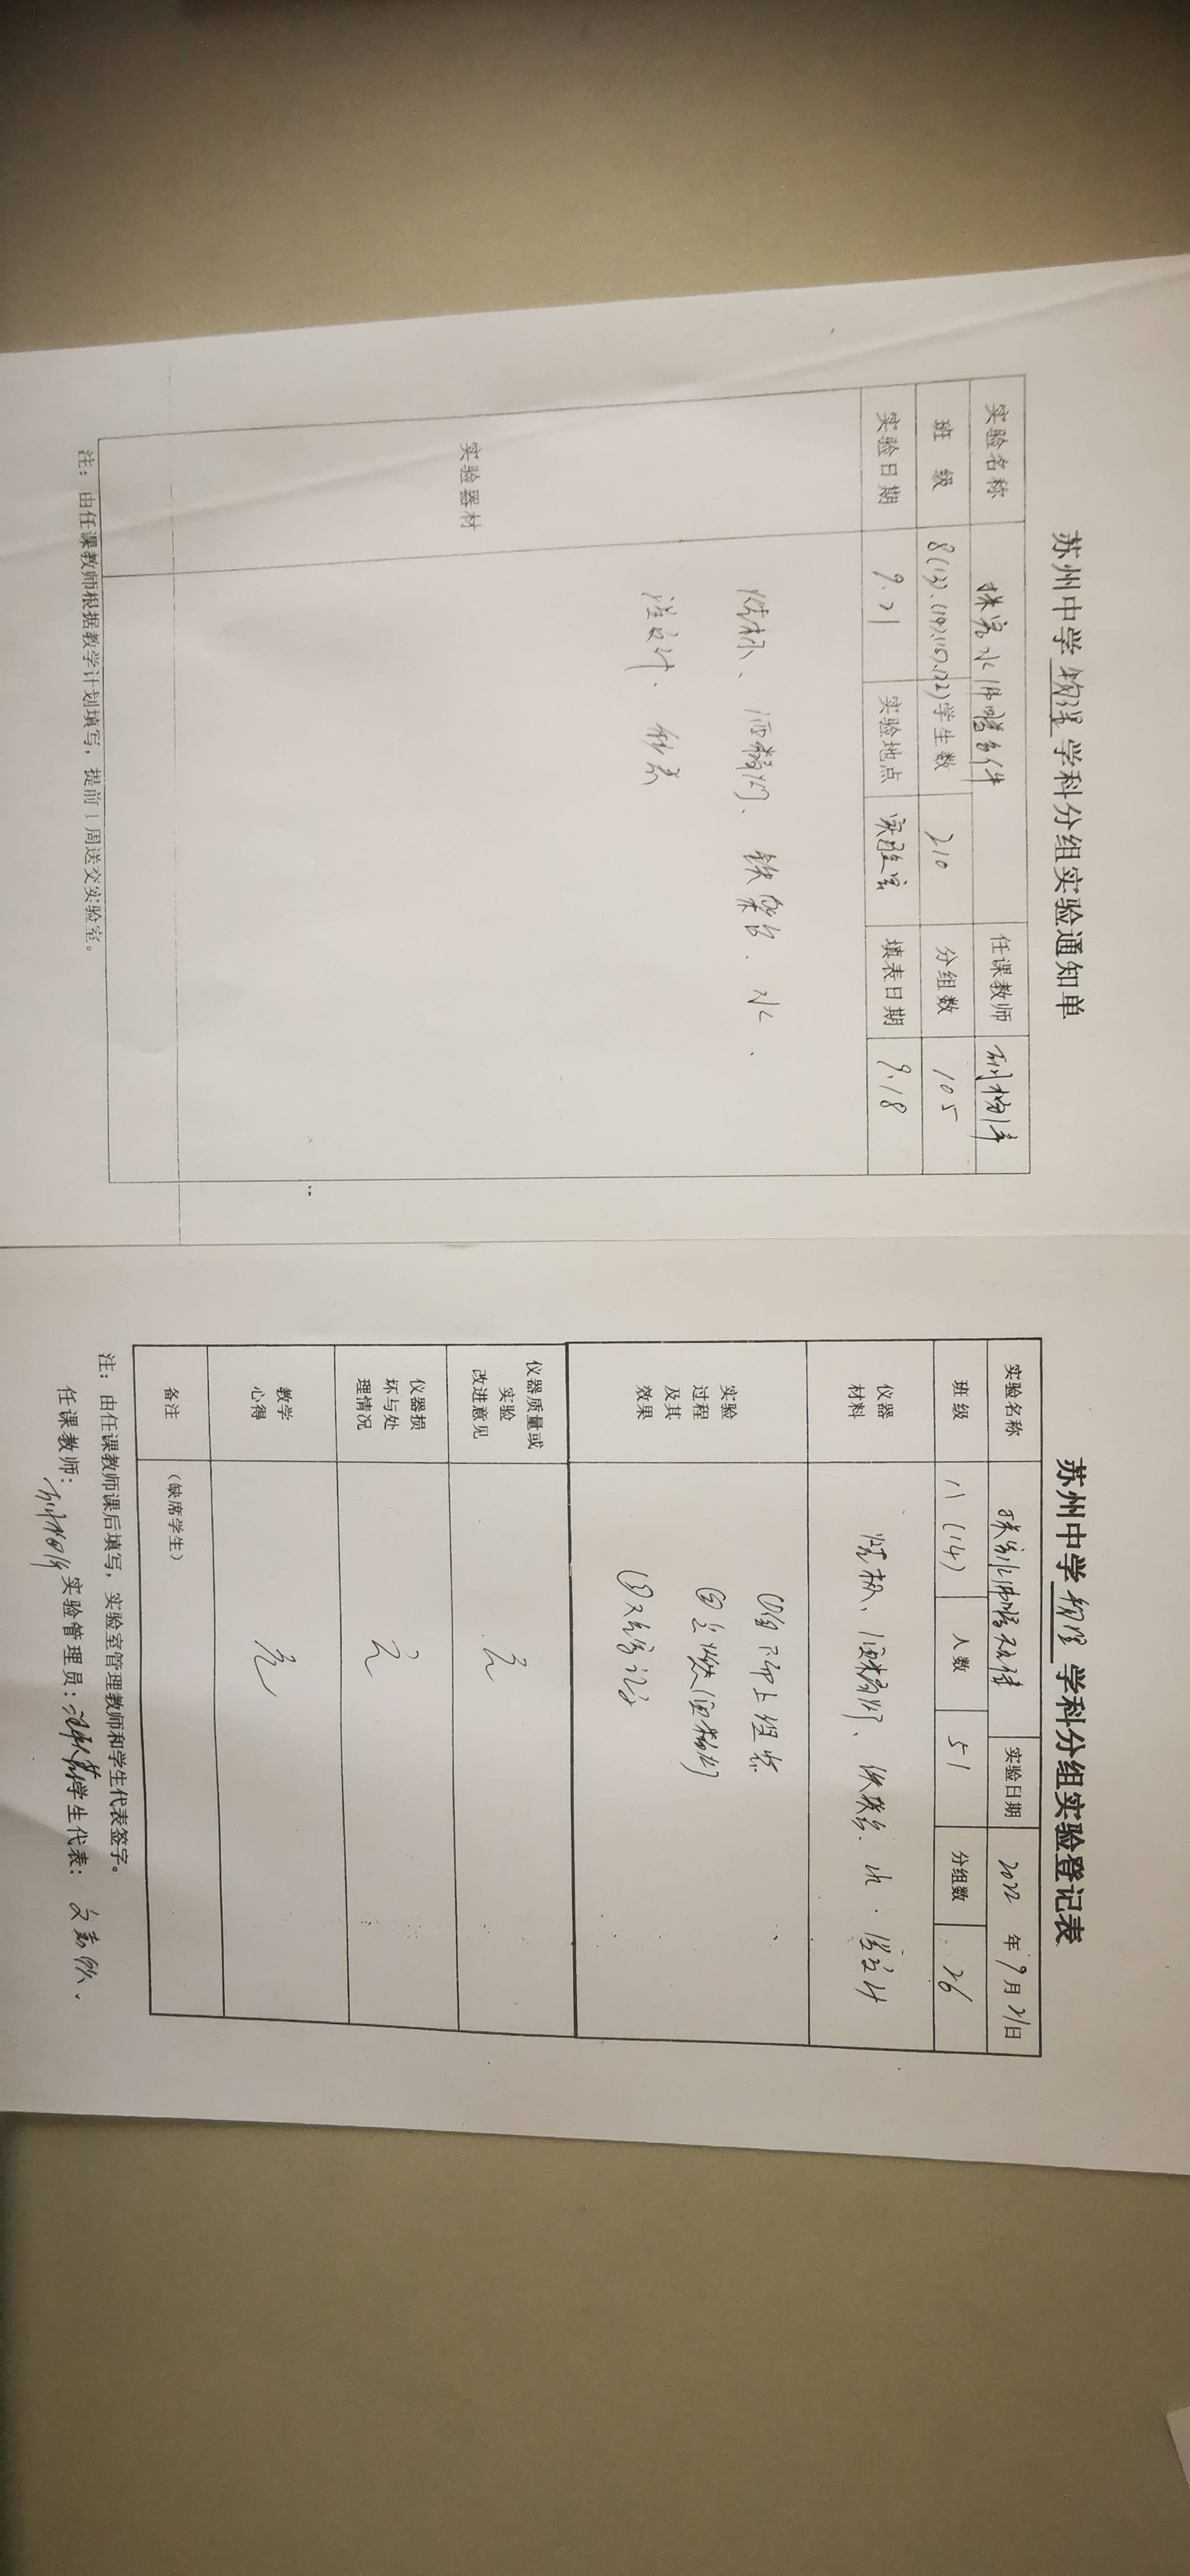 苏州中学 物理 学科分组实验通知单
实验名称 探究水沸腾条件 任课教师
班 级 8(13)、(14)、(15)、(22) 学生数 210 分组数 105
实验日期 9.21 实验地点 实验室 填表日期 9.18
实验器材
烧杯、酒精灯、铁架台、水、
温度计、秒表
注：由任课教师根据教学计划填写，提前1周送交实验室。
苏州中学 物理 学科分组实验登记表
实验名称 探究水沸腾 实验日期 2022 年 9 月 21 日
班级 八(14) 人数 51 分组数 26
仪器材料 烧杯、酒精灯、铁架台、水、温度计
实验过程及其效果
①自下而上组装
②点燃酒精灯
③
仪器质量或实验改进意见 无
仪器损坏与处理情况 无
教学心得 无
备注 （缺席学生）
注：由任课教师课后填写，实验室管理教师和学生代表签字。
任课教师： 实验管理员： 学生代表：